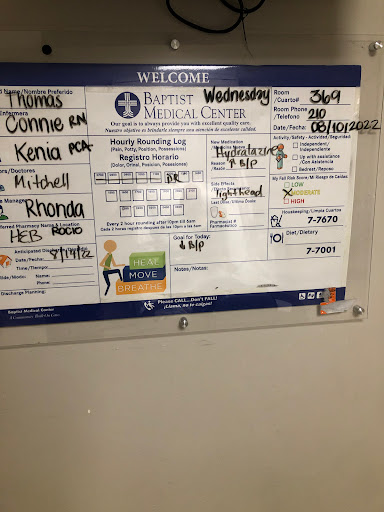 WELCOME
d Name/Nombre Preferido
Thomas
BAPTIST
MEDICAL CENTER
Our goal is to always provide you with excellent quality care.
Nuestro objetivo es brindarle siempre una atención de excelente calidad.
Wednesday
Room
/Cuarto# 369
Room Phone
/Telefono 210
Date/Fecha: 08/10/2022
Connie RN
Kenia PCA
rs/Doctores
Mitchell
Manage
Rhonda
ferred Pharmacy Name & Location
HEB Rocio
Anticipated Disch
Date/Fecha: 8/14/22
Time/Tiempo:
Name:
Phone:
Discharge Planning:
Hourly Rounding Log
(Pain, Potty, Position, Possessions)
Registro Horario
(Dolor, Orinal, Posicion, Posesiones)
DR
Every 2 hour rounding after 10pm till 6am
Cada 2 horas registro despues de las 10pm a las 6am
HEAL
MOVE
BREATHE
New Medication
Hydralazine
Reason ↑ B/P
Side Effects
lighthead
Pharmacist #
Farmacéutico
Goal for Today:
↓ B/P
Notes/Notas:
Activity/Safety - Actividad/Seguridad
Independent/
Independiente
Up with assistance
/Con Asistencia
Bedrest/Reposo
My Fall Risk Score/Mi Riesgo de Caidas
LOW
X MODERATE
HIGH
Housekeeping/Limpia Cuartos
7-7670
Diet/Dietary
7-7001
Please CALL...Don't FALL!
¡Llama, no te caigas!
Baptist Medical Center